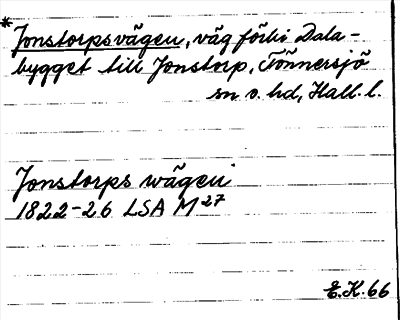 *Jonstorpsvägen, väg förbi Dala-
bygget till Jonstorp, Tönnersjö
sn o. hd, Hall. l.
Jonstorps wägen
1822-26 LSA M 27
E.K. 66